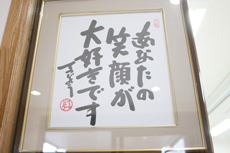 あなたの
笑顔が
大好きです